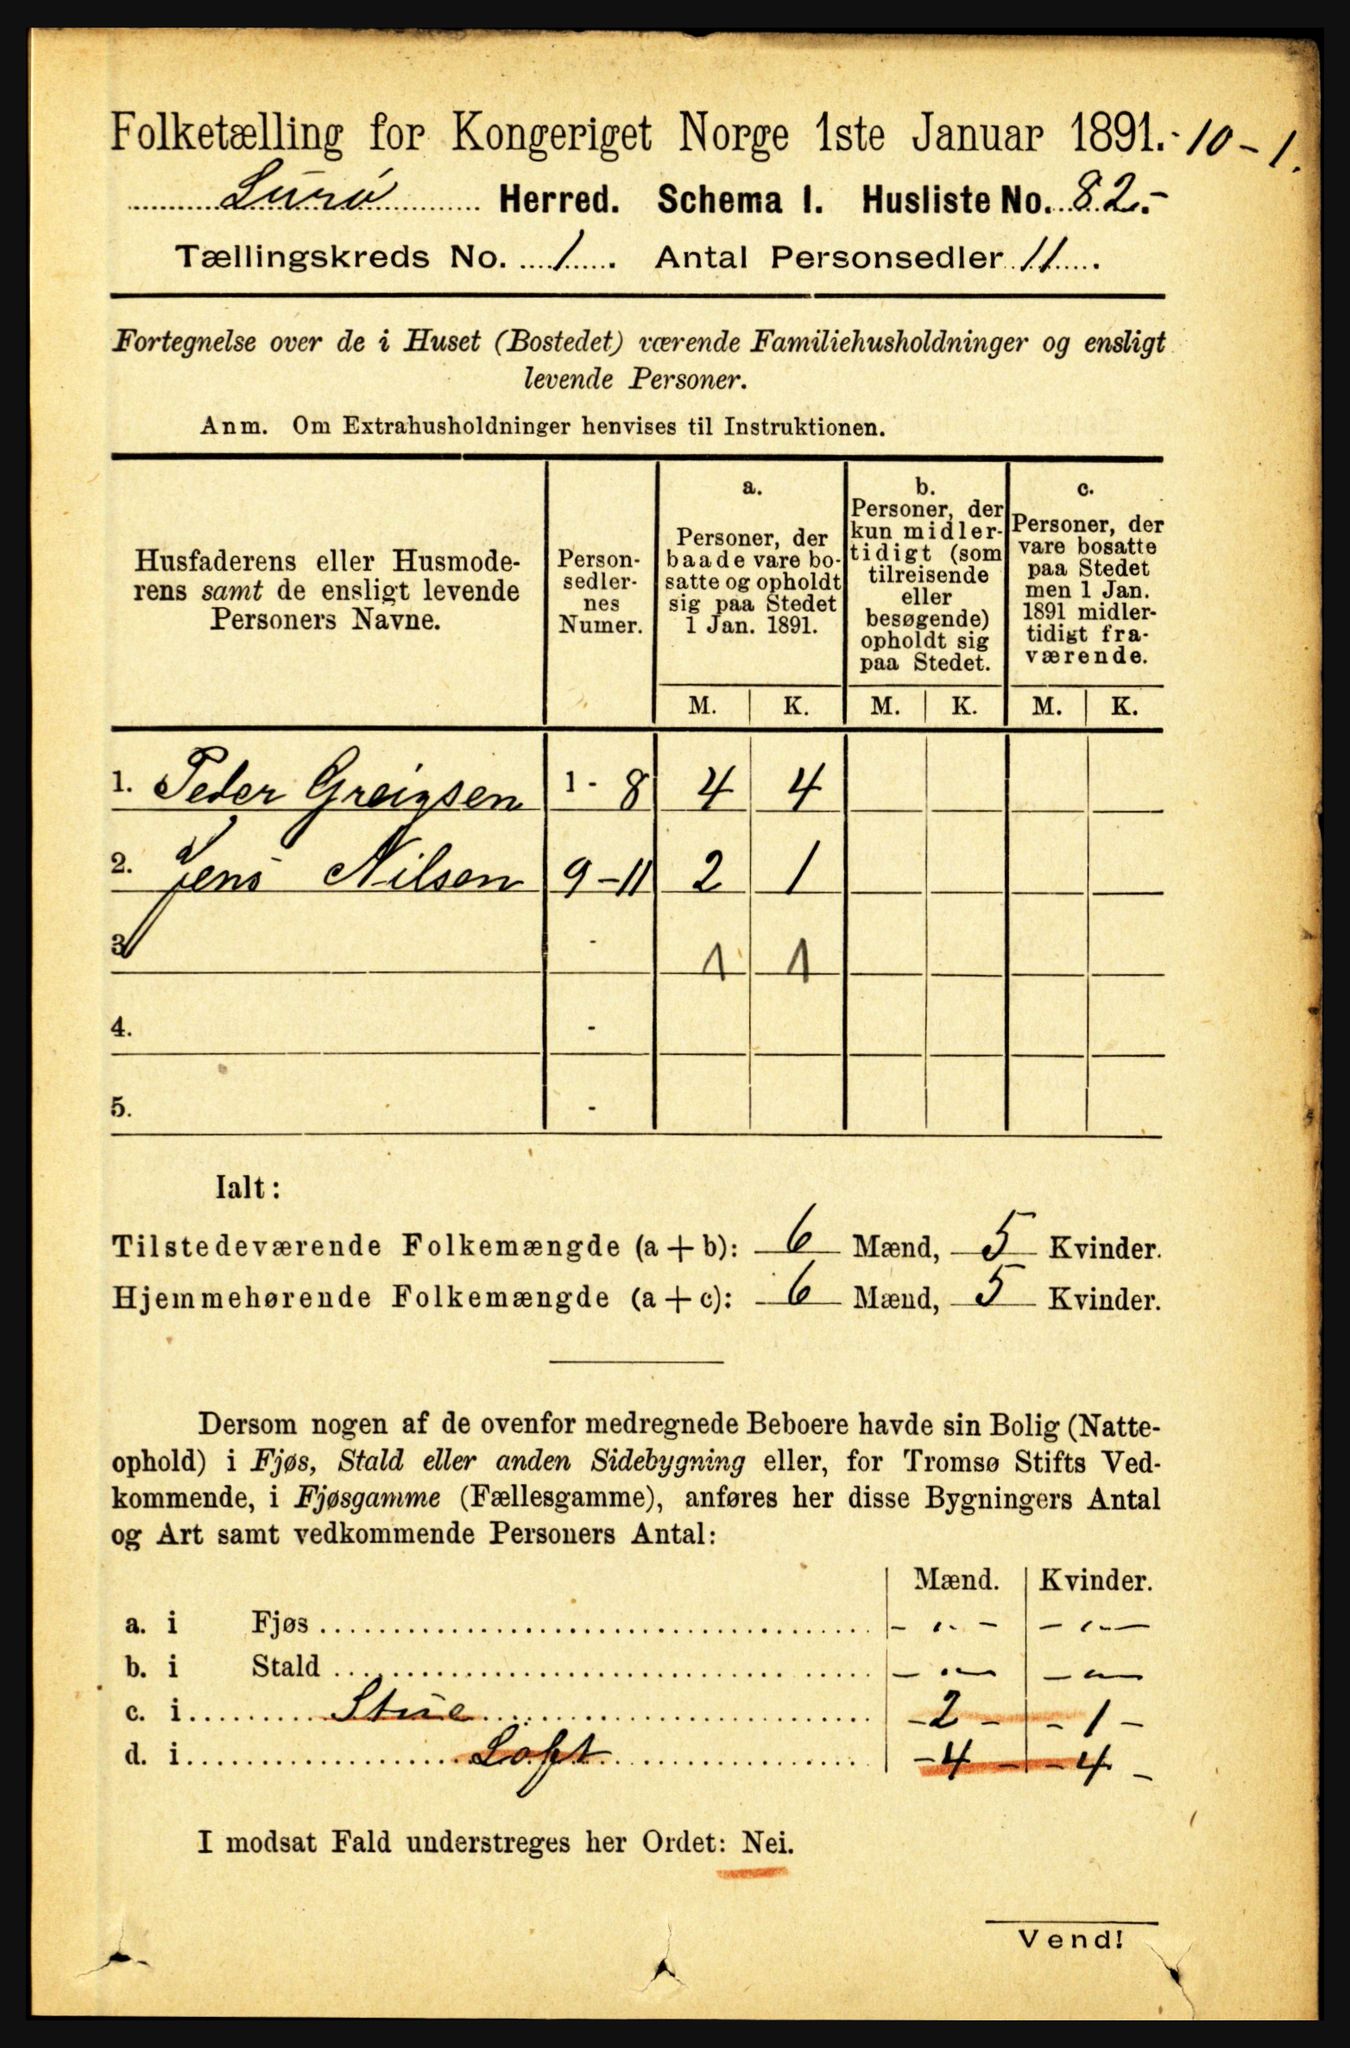 Folketælling for Kongeriget Norge 1ste Januar 1891. -10-1.
Lurø Herred. Schema I. Husliste No. 82.-
Tællingskreds No. 1. Antal Personsedler 11.
Fortegnelse over de i Huset (Bostedet) værende Familiehusholdninger og ensligt
levende Personer.
Anm. Om Extrahusholdninger henvises til Instruktionen.
Husfaderens eller Husmode-
rens samt de ensligt levende
Personers Navne.
Person-
sedler-
nes
Numer.
a.
Personer, der
baade vare bo-
satte og opholdt
sig paa Stedet
1 Jan. 1891.
b.
Personer, der
kun midler-
tidigt (som
tilreisende
eller
besøgende)
opholdt sig
paa Stedet.
c.
Personer, der
vare bosatte
paa Stedet
men 1 Jan.
1891 midler-
tidigt fra-
værende.
M. K. M. K. M. K.
1. Peder Greigsen 1 - 8 4 4
2. Jens Nilsen 9 - 11 2 1
3. - 1 1
4. -
5. -
Ialt:
Tilstedeværende Folkemængde (a + b): 6 Mænd, 5 Kvinder.
Hjemmehørende Folkemængde (a + c): 6 Mænd, 5 Kvinder.
Dersom nogen af de ovenfor medregnede Beboere havde sin Bolig (Natte-
ophold) i Fjøs, Stald eller anden Sidebygning eller, for Tromsø Stifts Ved-
kommende, i Fjøsgamme (Fællesgamme), anføres her disse Bygningers Antal
og Art samt vedkommende Personers Antal:
Mænd. Kvinder.
a. i Fjøs - „ - - „ -
b. i Stald - „ - - „ -
c. i Stue - 2 - - 1 -
d. i Loft - 4 - - 4 -
I modsat Fald understreges her Ordet: Nei.
Vend!